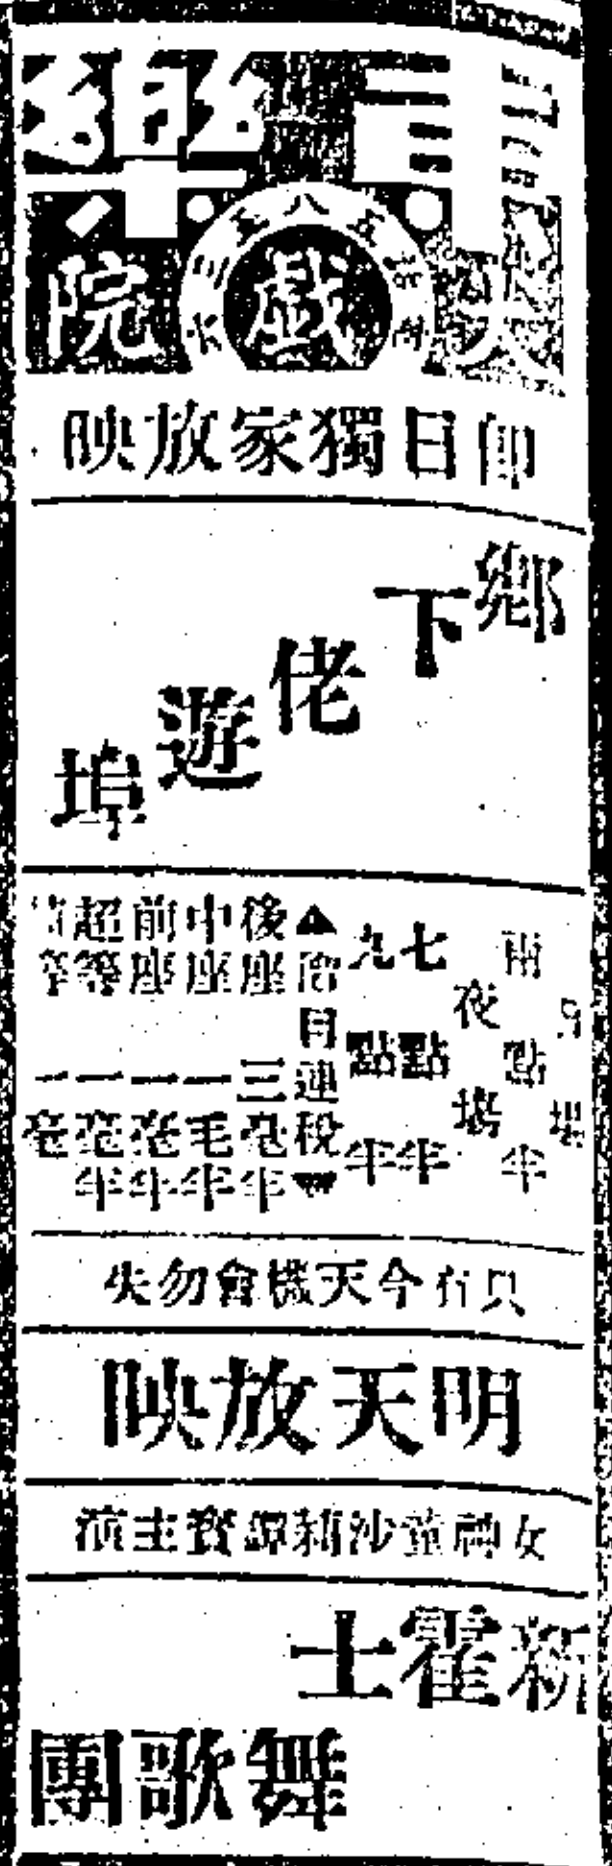 樂
大戲院
即日獨家放映
鄉下佬遊埠
兩點半
夜場
七點半
九點半
▲即日連稅▼
後座三毫半
中座一毛半
前座一毫半
超等一毫半
等一毫
只有今天機會勿失
明天放映
女神童沙莉譚寶主演
新霍士
歌舞團